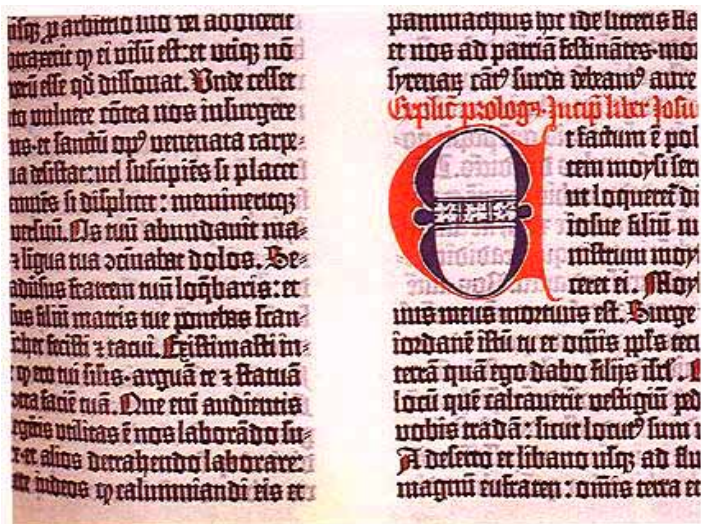 usq; p arbitrio suo vel addiderit
q̄ ei visū est: et utiq; nō
verū esse qd̄ dissonat. Unde cesset
to vulnere cōtra nos insurgere
us·et sanctū op⁹ venenata carpe-
desistat: vel suscipiēs si placet
si displicet: memineritq;
versuū. Os tuū abundavit ma-
⁊ ligua tua ↄcinabat dolos. Se-
fratrem tuū loq̄baris: et
sus filiū matris tue ponebas scan-
fecisti ⁊ tacui. Existimasti in-
q̄ ero tui silis·arguā te ⁊ statuā
faciē tuā. Que eni audientis
utilitas ē nos laborādo su-
et alios detrahendo laborare:
iudeos q̄ calumniandi eis et
pammachius hoc ide litteris fla
et nos ad patriā festinātes·mor
syrenaꝝ cāt⁹ surda debeam⁹ aure
Explic̄ prolog⁹. Incip̄ liber Josu
Et factum ē pos
tem moysi ser
ut loqueret̄ di
iosue filiū nu
nistrum moy
ceret ei. Moy
uus meus mortuus est. Surge
iordanē istū tu et omīs ppls tec
terrā quā ego dabo filijs isrl.
locū quē calcaverit vestigiū ped
vobis tradā: sicut locut⁹ sum
A deserto et libano usq; ad flu
magnū eufraten: omīs terra et